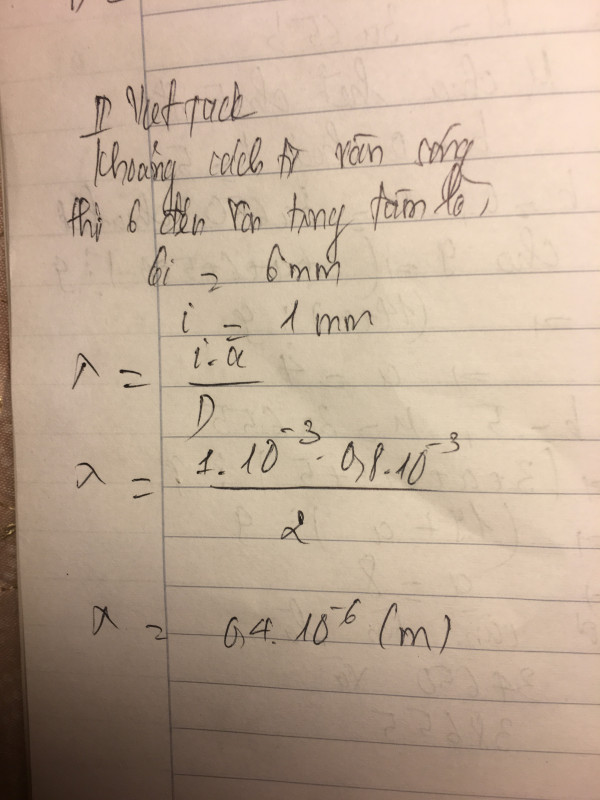 II Vietjack
khoảng cách từ vân sáng
thứ 6 đến vân trung tâm là,
6i = 6mm
i = 1 mm
λ = i.a / D
λ = 1.10⁻³ . 0,8.10⁻³ / 2
λ = 0,4.10⁻⁶ (m)